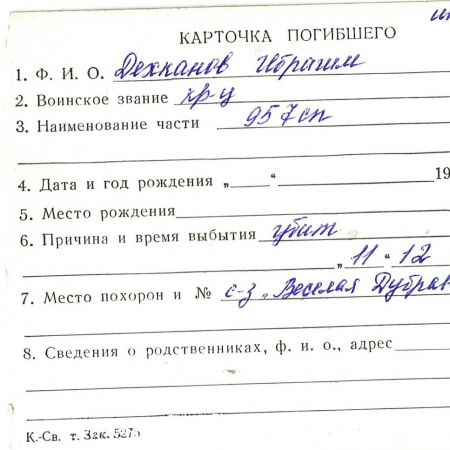 КАРТОЧКА ПОГИБШЕГО
1. Ф. И. О. Дехканов Ибрагим
2. Воинское звание кр-ц
3. Наименование части 957 сп
4. Дата и год рождения „ “ 19
5. Место рождения
6. Причина и время выбытия убит
„ 11 “ 12
7. Место похорон и № с-з „Веселая Дубрав
8. Сведения о родственниках, ф. и. о., адрес
К.-Св. т. Зак. 5275